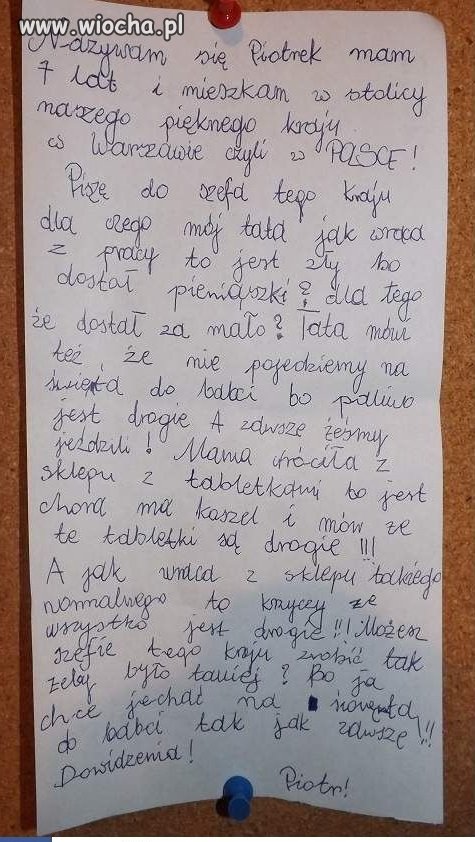 www.wiocha.pl
Nazywam się Piotrek mam
7 lat i mieszkam w stolicy
naszego pięknego kraju
w Warzawie czyli w POLSCE!
Piszę do szefa tego kraju
dla czego mój tata jak wraca
z pracy to jest zły bo
dostał pieniąszki? dla tego
że dostał za mało? Tata mówi
też że nie pojedziemy na
święta do babci bo paliwo
jest drogie A zawsze żeśmy
jeździli! Mama wróciła z
sklepu z tabletkami to jest
chora ma kaszel i mów że
te tabletki są drogie!!!
A jak wraca z sklepu takiego
normalnego to krzycey ze
wszystko jest drogie!!! Możesz
szefie tego kraju zrobić tak
żeby było taniej? Bo ja
chce jechać na święta
do babci tak jak zawsze!!!
Dowidzenia!
Piotr!